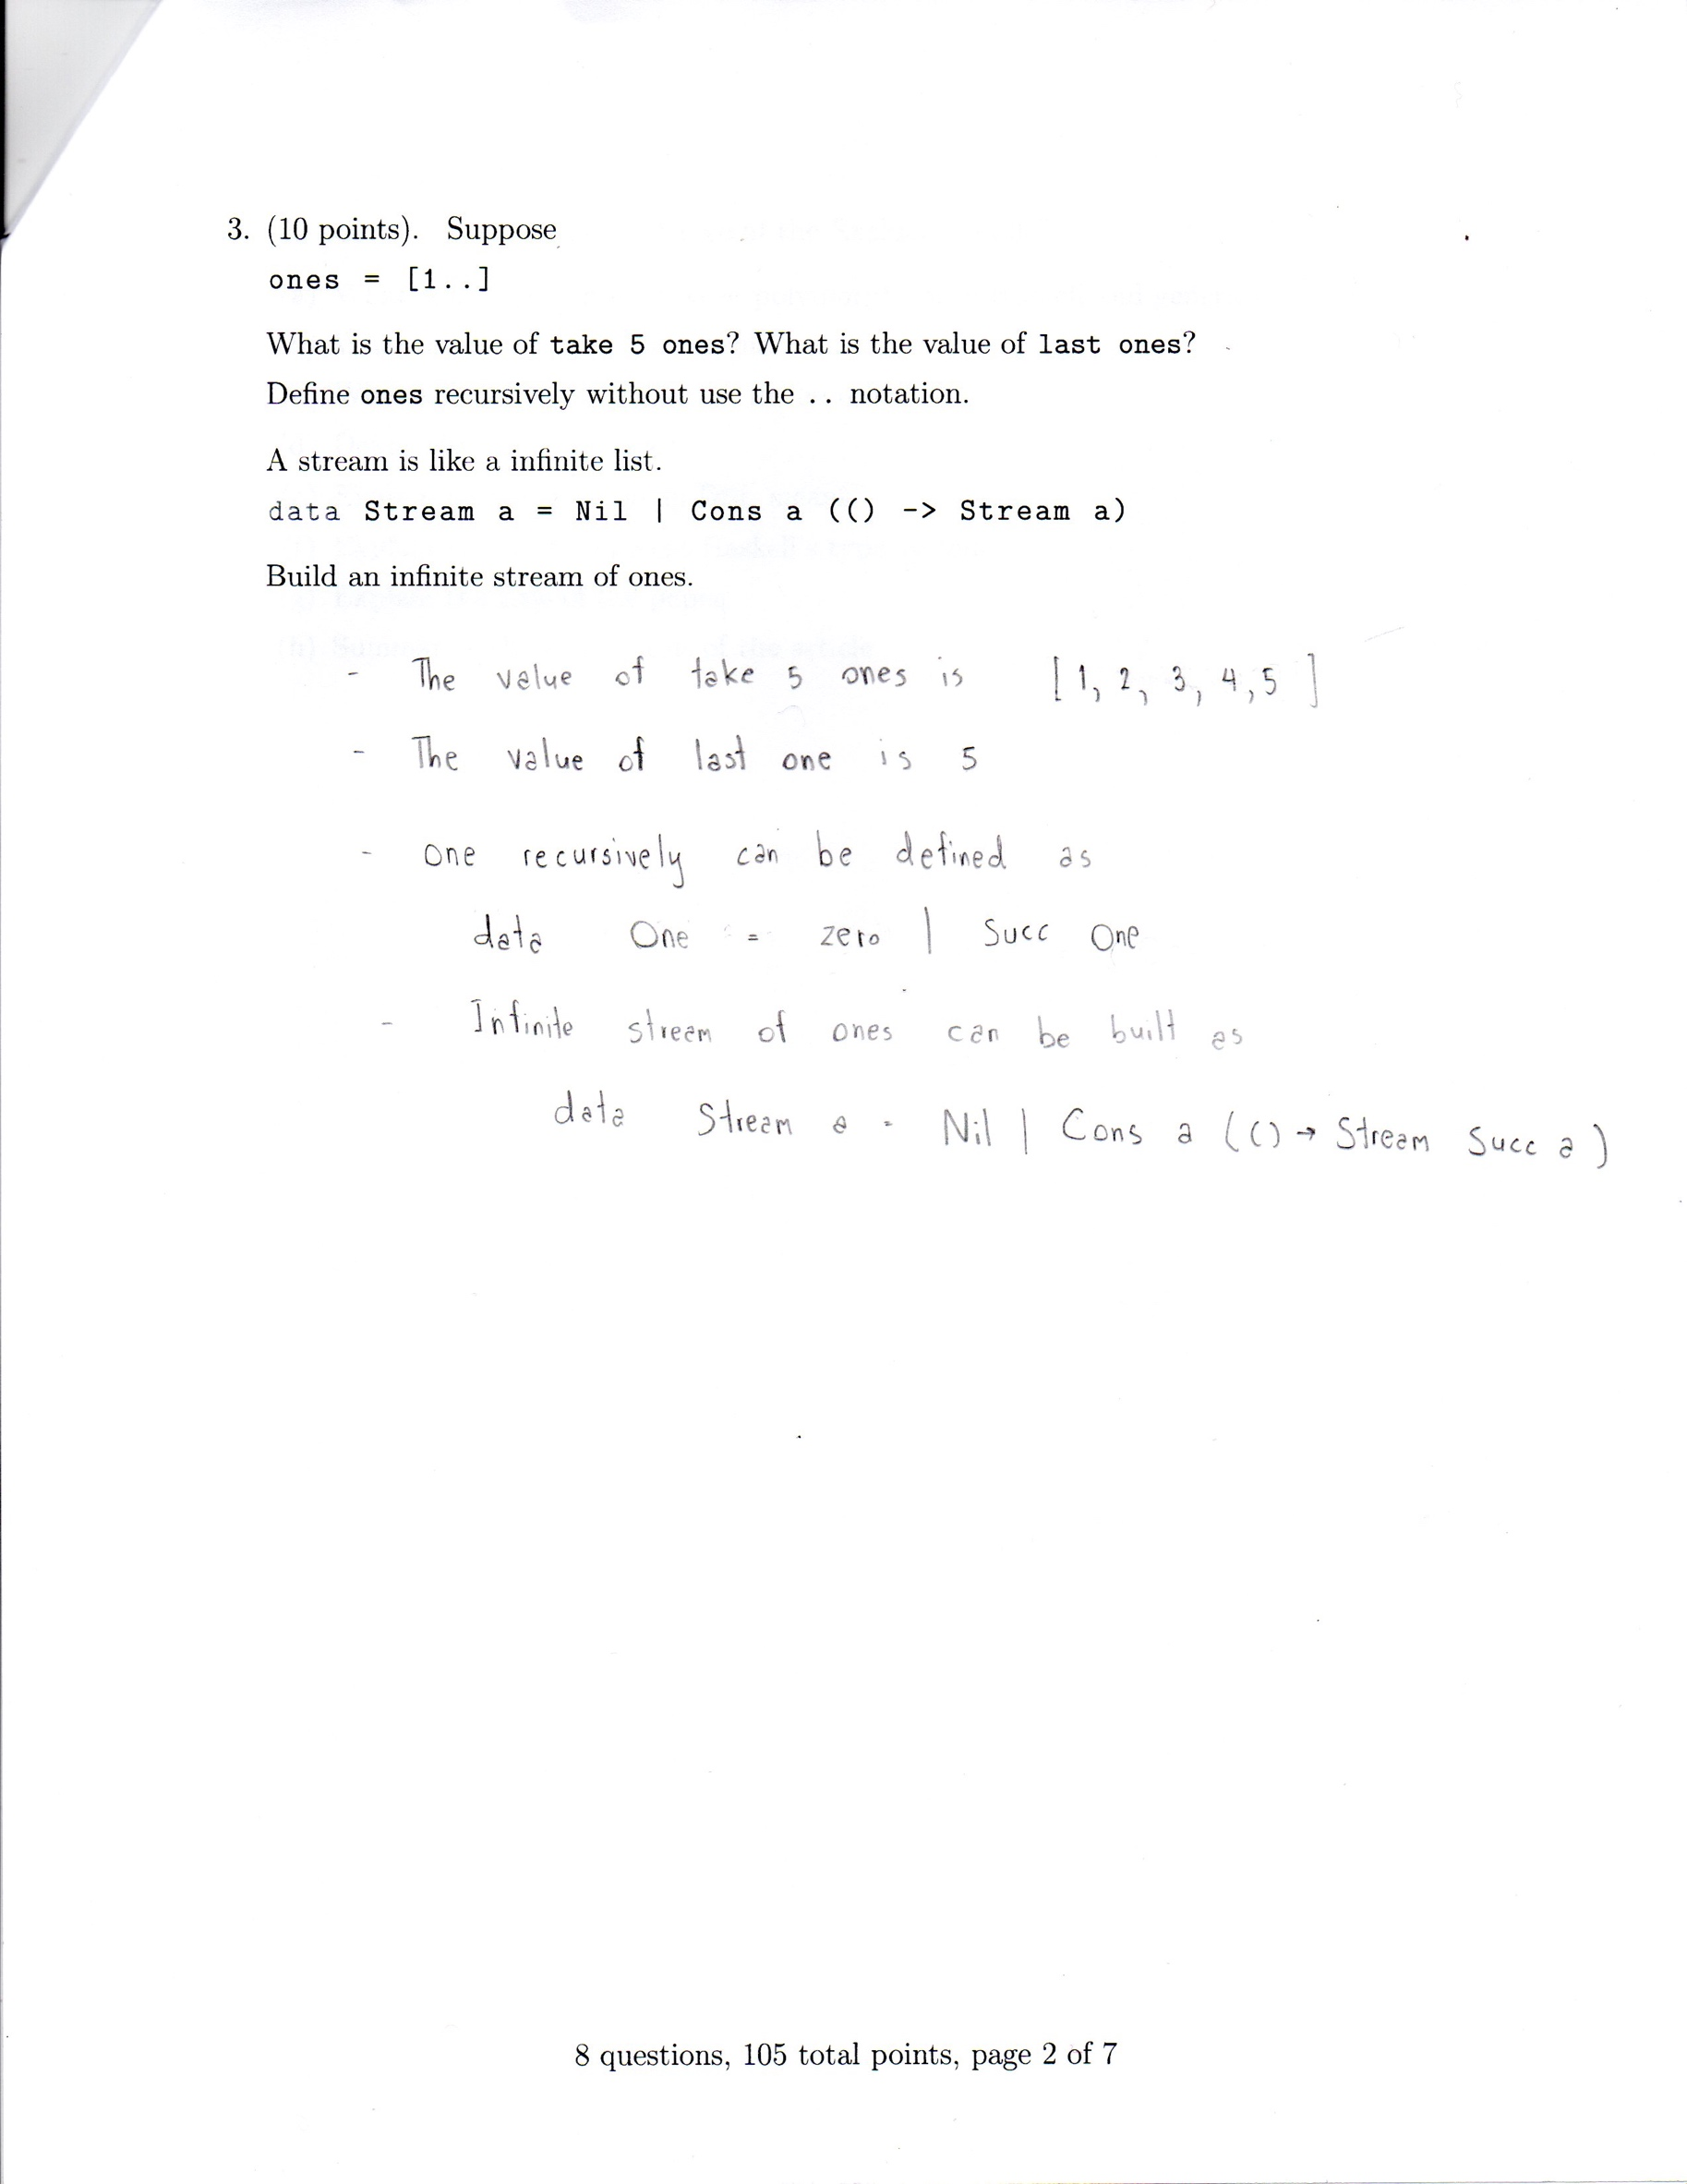 3. (10 points). Suppose
ones = [1..]
What is the value of take 5 ones? What is the value of last ones?
Define ones recursively without use the .. notation.
A stream is like a infinite list.
data Stream a = Nil | Cons a (() -> Stream a)
Build an infinite stream of ones.
- The value of take 5 ones is [1, 2, 3, 4, 5]
- The value of last one is 5
- one recursively can be defined as
data One = zero | Succ One
- Infinite stream of ones can be built as
data Stream a = Nil | Cons a (() → Stream Succ a)
8 questions, 105 total points, page 2 of 7